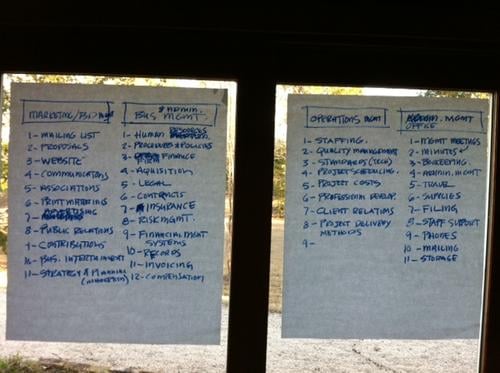 MARKETING/BD
1- MAILING LIST
2- PROPOSALS
3- WEBSITE
4- COMMUNICATIONS
5- ASSOCIATIONS
6- PRINT MATERIALS
7- ADVERTISING
8- PUBLIC RELATIONS
9- CONTRIBUTIONS
10- BUS. INTERTAINMENT
11- STRATEGY & PLANNING
& ADMIN.
BUS. MGMT.
1- HUMAN RESOURCES
2- PROCEDURES & POLICIES
3- FINANCE
4- AQUISITION
5- LEGAL
6- CONTRACTS
7- INSURANCE
8- RISK MGMT.
9- FINANCIAL MGMT
SYSTEMS
10- RECORDS
11- INVOICING
12- COMPENSATION
OPERATIONS MGMT
1- STAFFING
2- QUALITY MANAGEMENT
3- STANDARDS (TECH)
4- PROJECT SCHEDULING
5- PROJECT COSTS
6- PROFESSIONAL DEVELOP.
7- CLIENT RELATIONS
8- PROJECT DELIVERY
METHODS
9-
ADMIN. MGMT
OFFICE
1- MGMT MEETINGS
2- MINUTES
3- BOOKEEPING
4- ADMIN. MGMT
5- TRAVEL
6- SUPPLIES
7- FILING
8- STAFF SUPPORT
9- PHONES
10- MAILING
11- STORAGE